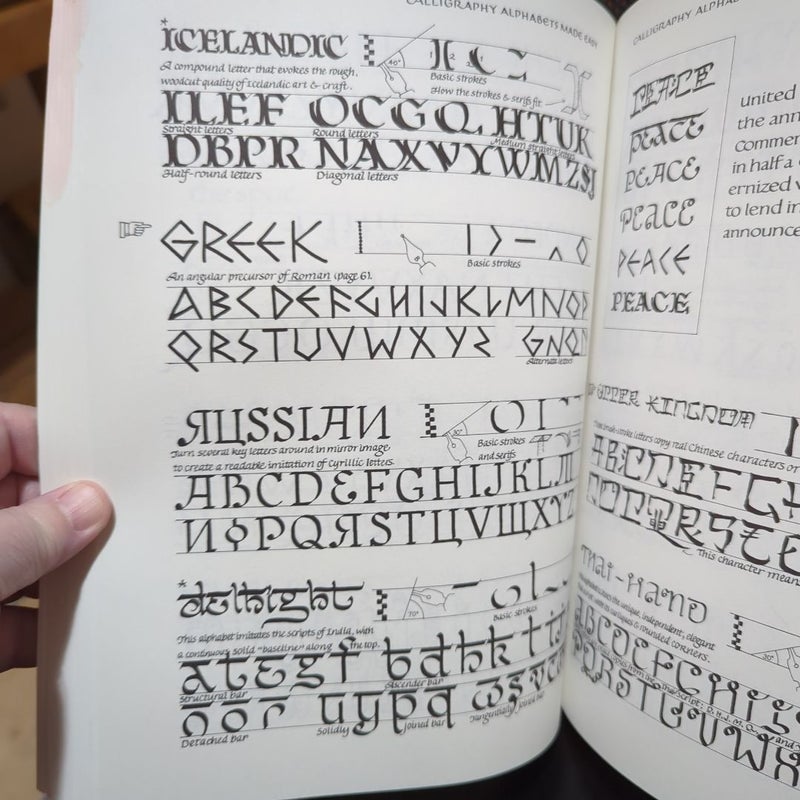 CALLIGRAPHY ALPHABETS MADE EASY
ICELANDIC
40°
1 2
A compound letter that evokes the rough,
woodcut quality of Icelandic art & craft.
Basic strokes
How the strokes & serifs fit
ILEF OCGQ HTUK
Straight letters Round letters Medium straight letters
DBPR NAXVYWMZSJ
Half-round letters Diagonal letters
GREEK
Basic strokes
An angular precursor of Roman (page 6).
ABCDEFGHIJKLMNOP
QRSTUVWXYZ GNQ
Alternate letters
ЯUSSIAN
30°
Basic strokes
and serifs
Turn several key letters around in mirror image
to create a readable imitation of Cyrillic letters.
ABCDEFGHIJKLM
NOPQRSTUVWXYZ
delhight
70°
Basic strokes
This alphabet imitates the scripts of India, with
a continuous solid "baseline" along the top.
Structural bar
Ascender bar
Detached bar
Solidly joined bar
Tangentially joined bar
CALLIGRAPHY
PEACE
PEACE
PEACE
PEACE
PEACE
PEACE
united
the ann
commem
in half a
ernized
to lend in
announce
UPPER KINGDOM
letters copy real Chinese characters or
This character mean
THAI-HAND